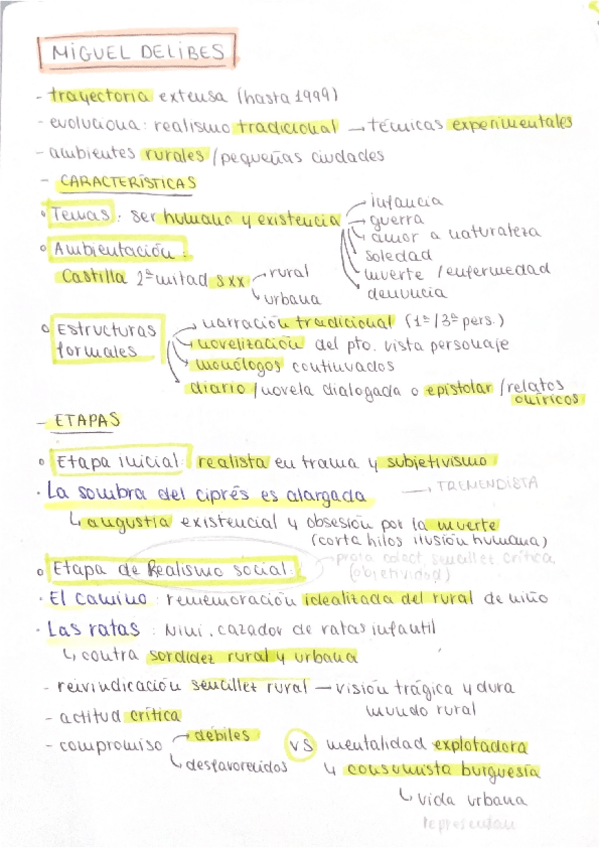 MIGUEL DELIBES
- trayectoria extensa (hasta 1999)
- evoluciona: realismo tradicional → técnicas experimentales
- ambientes rurales / pequeñas ciudades
- CARACTERÍSTICAS
Temas: ser humano y existencia
infancia
guerra
amor a naturaleza
soledad
muerte / enfermedad
denuncia
Ambientación:
Castilla 2ª mitad SXX
rural
urbana
Estructuras formales
narración tradicional (1ª/3ª pers.)
novelización del pto. vista personaje
monólogos continuados
diario / novela dialogada o epistolar / relatos
oníricos
- ETAPAS
Etapa inicial: realista en trama y subjetivismo
· La sombra del ciprés es alargada → TREMENDISTA
↳ angustia existencial y obsesión por la muerte
(corta hilos ilusión humana)
Etapa de Realismo social:
prota colect, sencillez, crítica
(objetividad)
· El camino: rememoración idealizada del rural de niño
· Las ratas: Nini, cazador de ratas infantil
↳ contra sordidez rural y urbana
- reivindicación sencillez rural — visión trágica y dura
mundo rural
- actitud crítica
- compromiso → débiles VS mentalidad explotadora
↳ desfavorecidos ↳ consumista burguesía
↳ vida urbana
representan